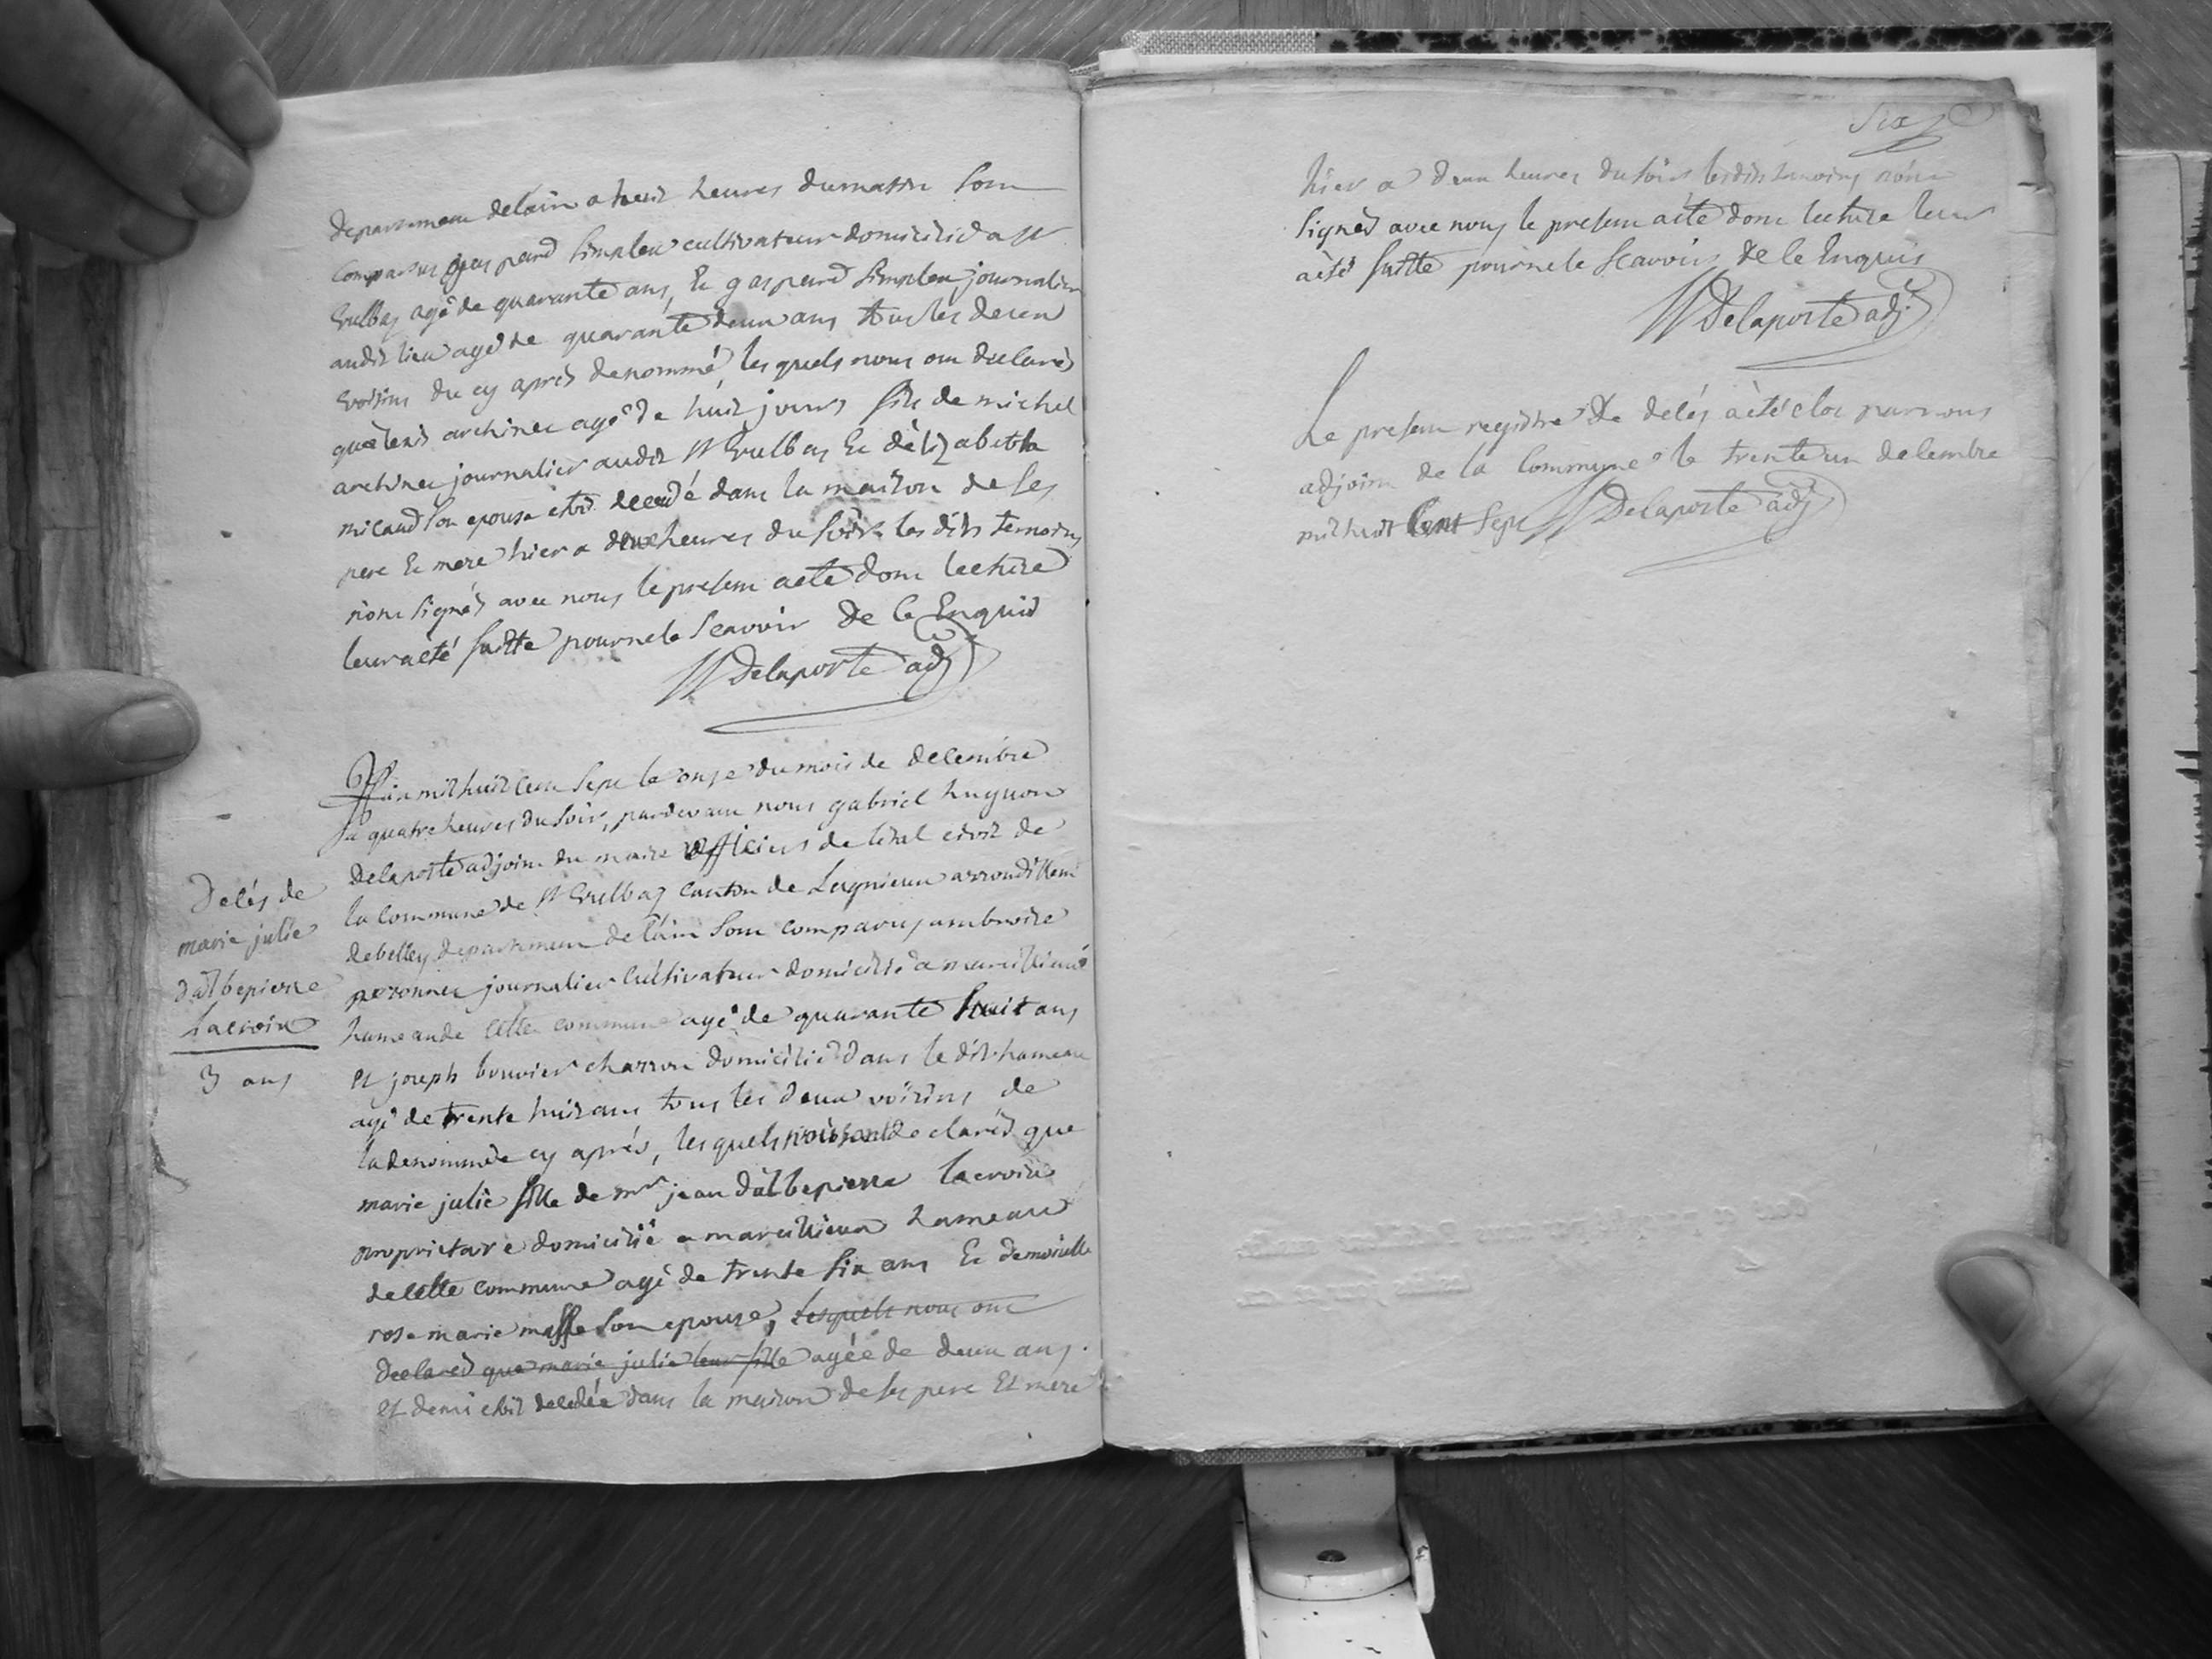 departement delain a huit heures dumatin sont
comparus gaspard simplex cultivateur domicilié a st
Vulbas agé de quarante ans, Et gaspard simplex journalier
audit lieu agé de quarante deux ans tous les deux
voisins du cy aprés denommé, lesquels nous ont declarés
que denis archinet agé de huit jours fils de michel
archinet journalier audit st Vulbas Et délizabeth
micaud son epouse etoit decedé dans la maison de ses
pere Et mere hier a deux heures du soir les dits temoins
nont signés avec nous le present acte dont lecture
leur acté faitte pour ne le scavoir de ce Enquis
Delaporte adj
Lan mil huit cent sept le onze du mois de decembre
a quatre heures du soir, pardevant nous gabriel huguon
Delaporte adjoint du maire officiers de letat civil de
la commune de st Vulbas canton de Lagnieux arrondissemt
debelley departement de lain sont comparus ambroise
peronnet journalier cultivateur domicilié a marcillieux
hameau de cette commune agé de quarante huit ans
et joseph bouvier charron domicilié dans le dit hameau
agé de trente huit ans tous les deux voisins de
la denommée cy aprés, lesquels nous ont declarés que
marie julie fille de mr jean dalbepierre lacroix
proprietaire domicilié a marcillieux hameau
de cette commune agé de trente six ans Et demoiselle
rose marie masse son epouse, lesquels nous ont
declarés que marie julie leur fille agée de deux ans
et demi etoit decedée dans la maison de ses pere Et mere
Decés de
marie julie
dalbepierre
Lacroix
3 ans
Six
hier a deux heures du soir lesdits temoins nont
signés avec nous le present acte dont lecture leur
acté faitte pour ne le scavoir de ce Enquis
Delaporte adj
Le present registre De decés a été clos par nous
adjoint de la Commune le trente un decembre
mil huit Cent Sept Delaporte adj